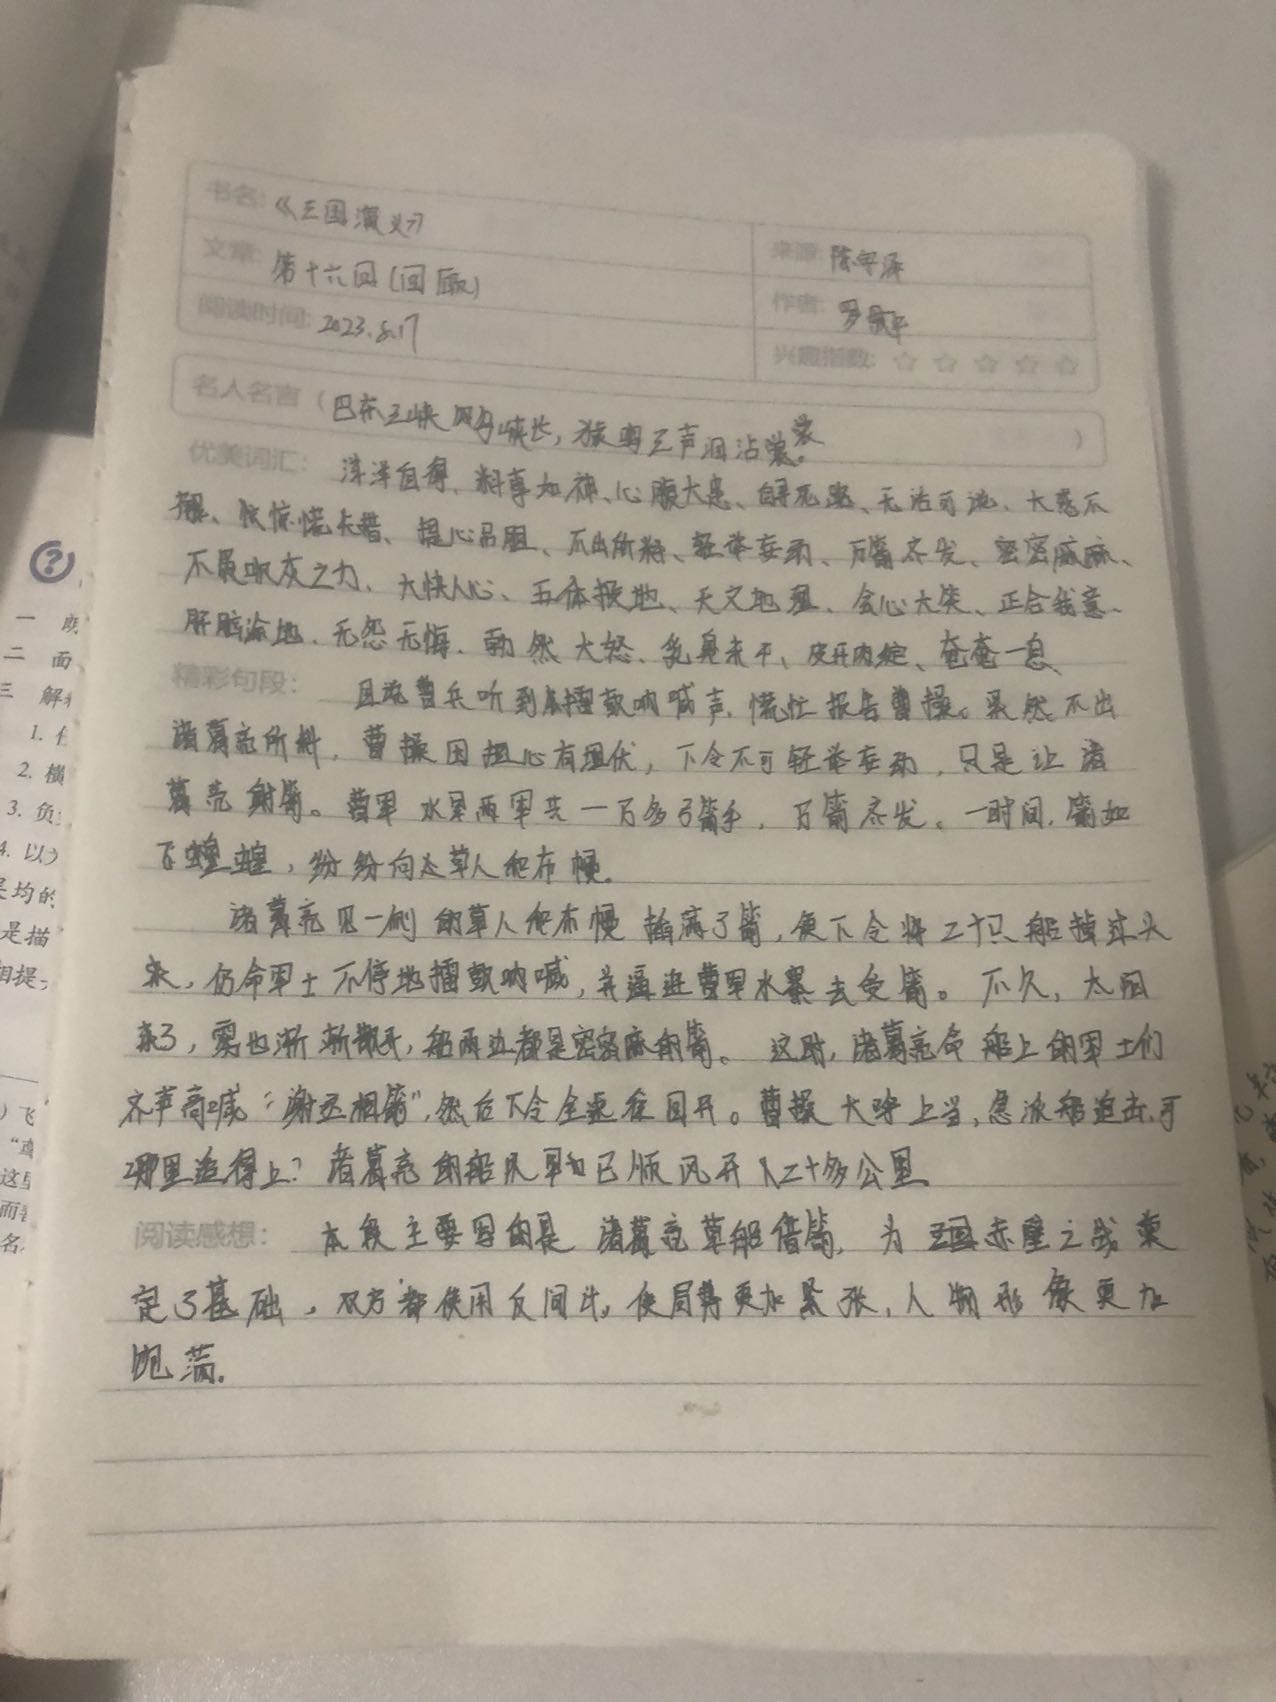 书名:《三国演义》
来源:陈
文章:第十六回(回顾)
作者:罗贯中
阅读时间:2023.8.17
兴趣指数:☆ ☆ ☆ ☆ ☆
名人名言(巴东三峡巫峡长,猿鸣三声泪沾裳。)
优美词汇: 洋洋自得、料事如神、心腹大患、自寻死路、无话可说、大惑不
解、惊慌失措、提心吊胆、不出所料、轻举妄动、万箭齐发、密密麻麻、
不费吹灰之力、大快人心、五体投地、天文地理、会心大笑、正合我意、
肝脑涂地、无怨无悔、勃然大怒、乳臭未干、皮开肉绽、奄奄一息
精彩句段: 且说曹兵听到擂鼓呐喊声,慌忙报告曹操。果然不出
诸葛亮所料,曹操因担心有埋伏,下令不可轻举妄动,只是让诸
葛亮射箭。曹军水军两军共一万多弓箭手,万箭齐发。一时间,箭如
飞蝗蝗,纷纷向草人和布幔。
诸葛亮见一侧的草人和布幔插满了箭,便下令将二十只船掉过头
来,仍命军士不停地擂鼓呐喊,并逼进曹军水寨去受箭。不久,太阳
来了,雾也渐渐散开,船两边都是密密麻的箭。这时,诸葛亮命船上的军士们
齐声高喊“谢丞相箭”,然后下令全速往回开。曹操大呼上当,急派船追击,可
哪里追得上?诸葛亮的船队早和已顺风开入二十多公里。
阅读感想: 本段主要写的是诸葛亮草船借箭,为赤壁之战奠
定了基础,双方都使用反间计,使局势更加紧张,人物形象更加
饱满。
一 朗
二 面
三 解
1. 任
2. 横
3. 负
4. 以
是均的
是描
相提
飞
这里
而
名